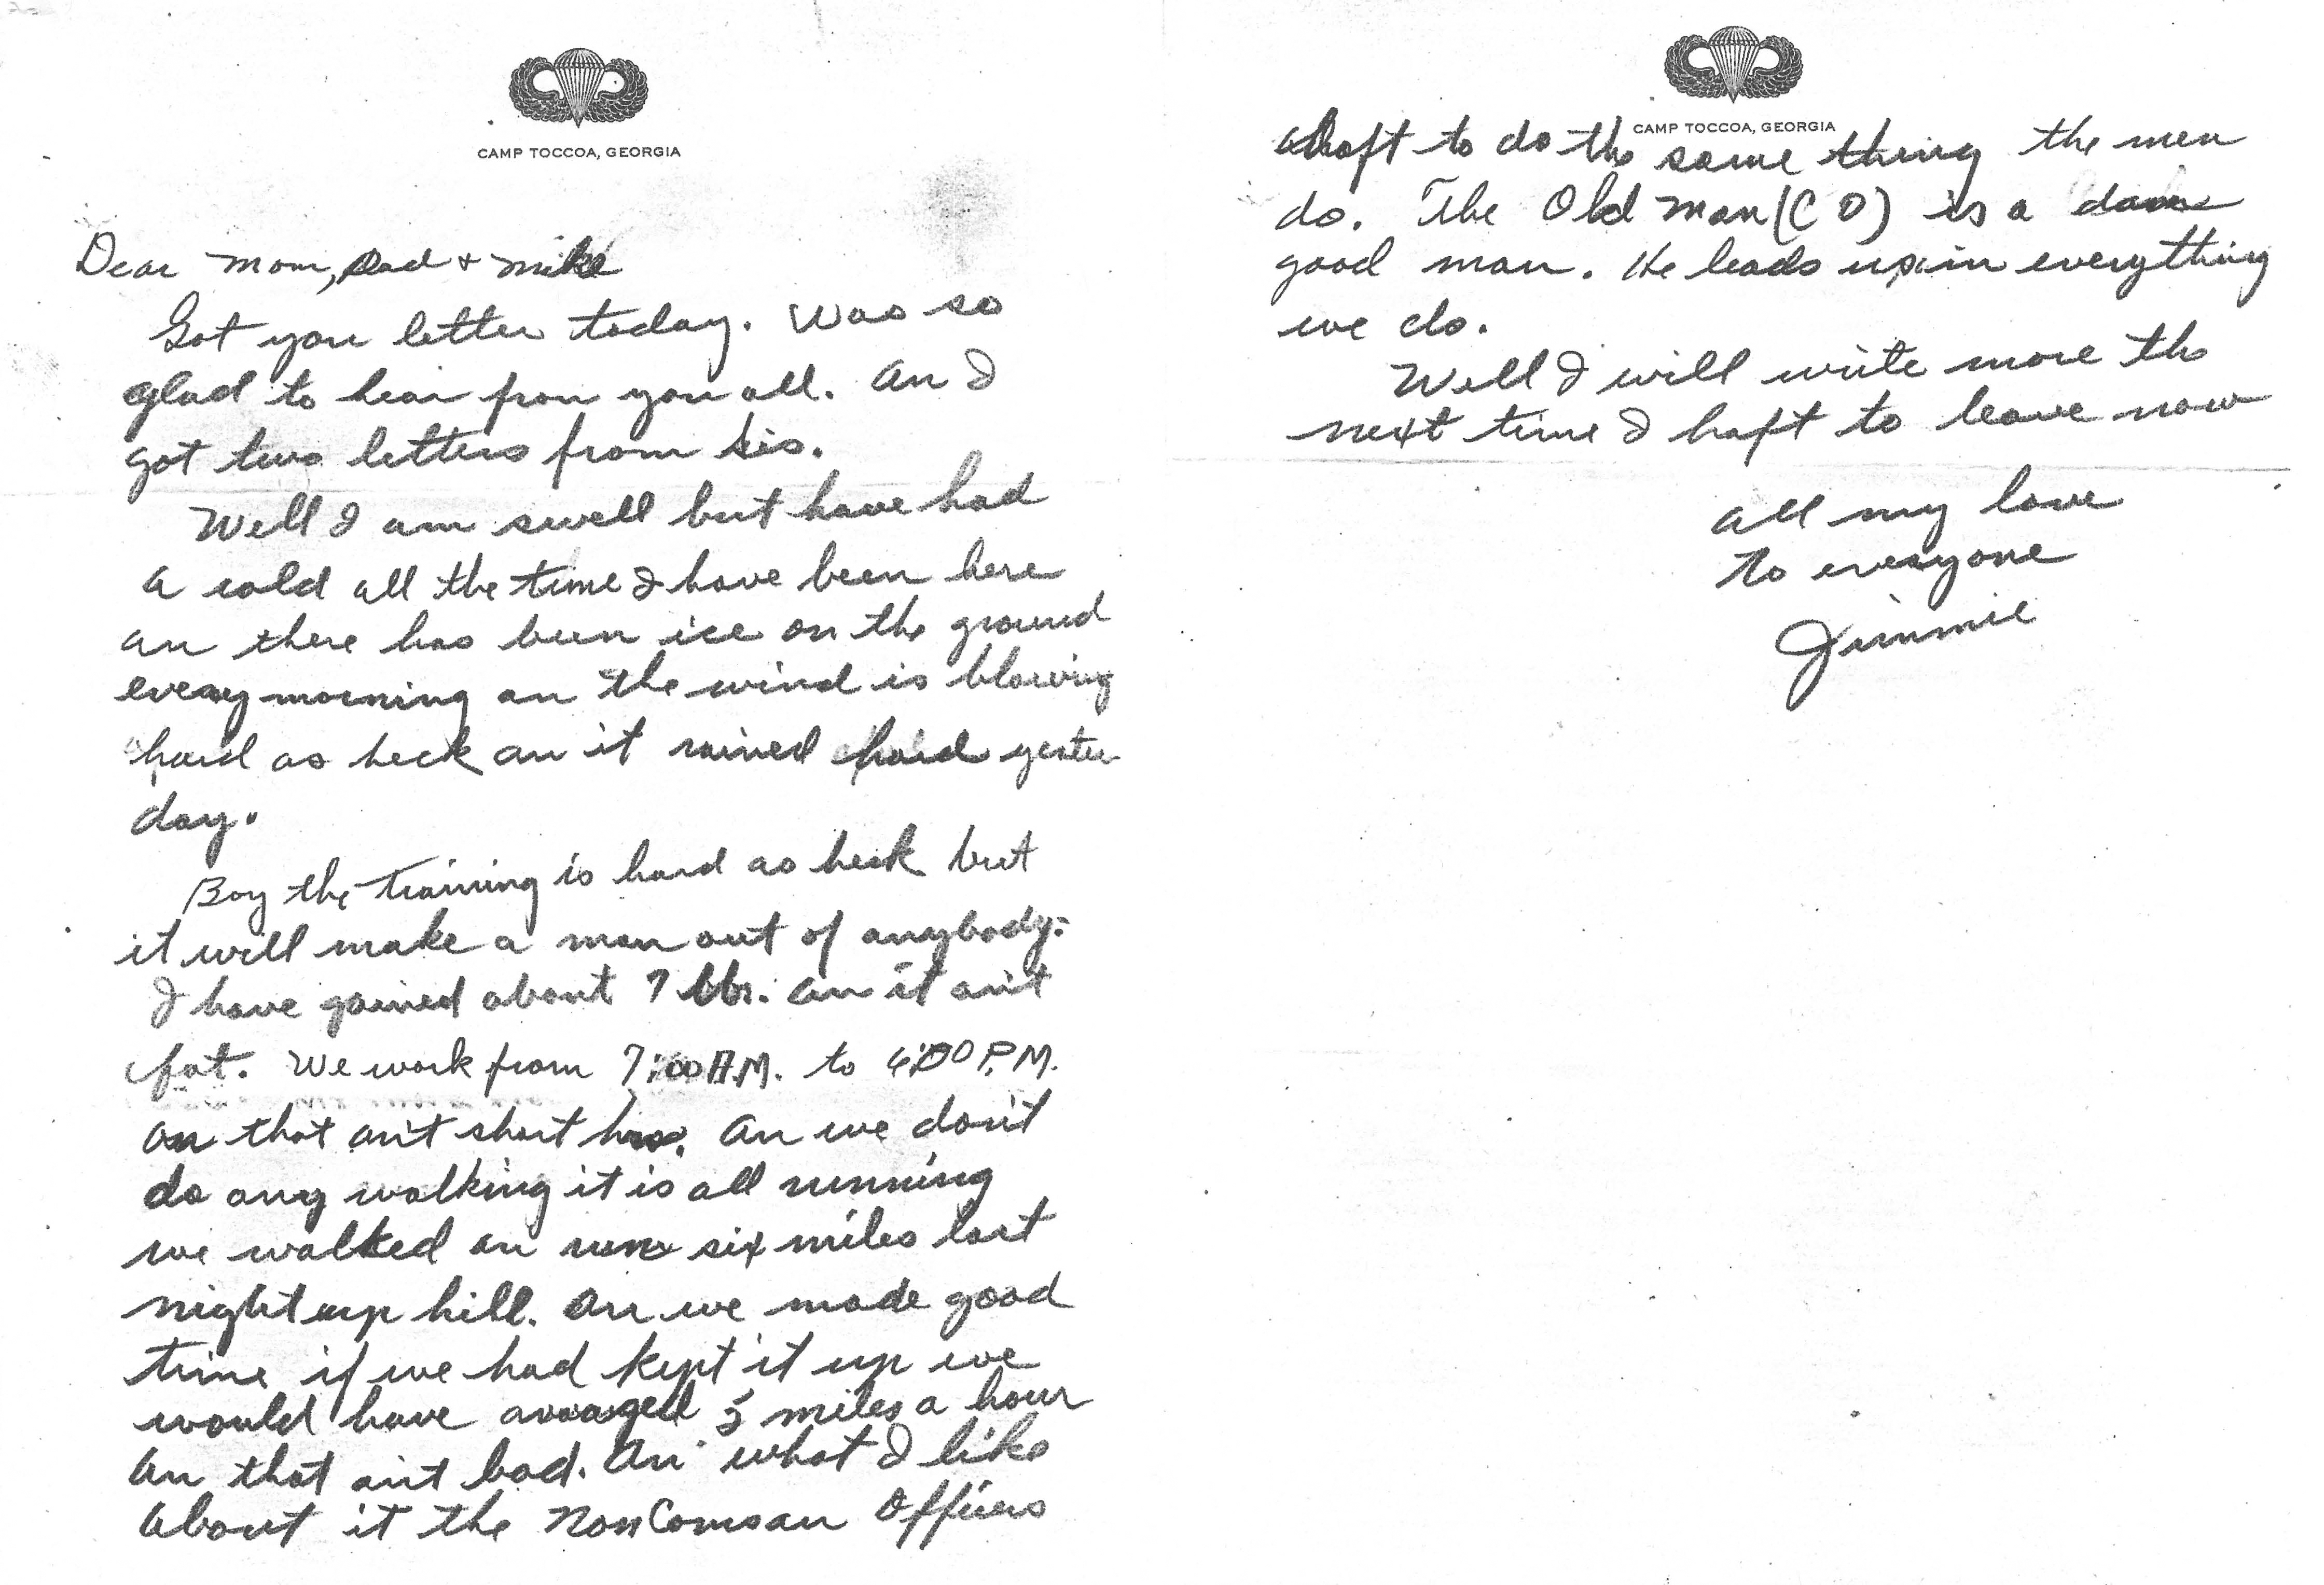 CAMP TOCCOA, GEORGIA
Dear Mom, Dad & Mike
Got you letter today. Was so
glad to hear fron you all. An I
got two letters from sis.
Well I am swell but have had
a cold all the time I have been here
an there has been ice on the ground
every morning an the wind is blowing
hard as heck an it rained hard yester
day.
Boy the training is hard as heck but
it will make a man out of anybody.
I have gained about 7 lbs. an it ain't
fat. We work from 7:00 A.M. to 6:00 P.M.
an that ain't short hrs. An we don't
do any walking it is all running
we walked an run six miles last
night up hill. An we made good
time if we had kept it up we
would have avaraged 5 miles a hour
an that ain't bad. An what I like
about it the Non Coms an Officers
CAMP TOCCOA, GEORGIA
haft to do the same thing the men
do. The Old Man (C O) is a damn
good man. He leads us in everything
we do.
Well I will write more the
next time I haft to leave now
all my love
to everyone
Jimmie